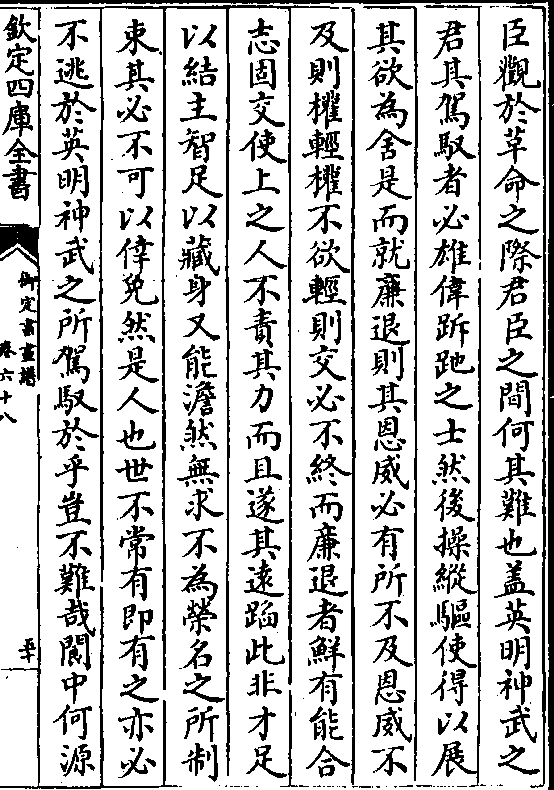 臣觀於草命之際君臣之間何其難也蓋英明神武之
君其駕馭者必雄偉跅跑之士然後操縱驅使得以展
其欲為舍是而就廉退則其恩威必有所不及恩威不
及則權輕權不欲輕則交必不終而廉退者鮮有能合
志固交使上之人不責其力而且遂其遠蹈此非才足
以結主智足以藏身又能澹然無求不為榮名之所制
束其必不可以倖免然是人也世不常有即有之亦必
不逃於英明神武之所駕馭於乎豈不難哉閬中何源
欽定四庫全書
御定書畫譜
卷六十八
五十